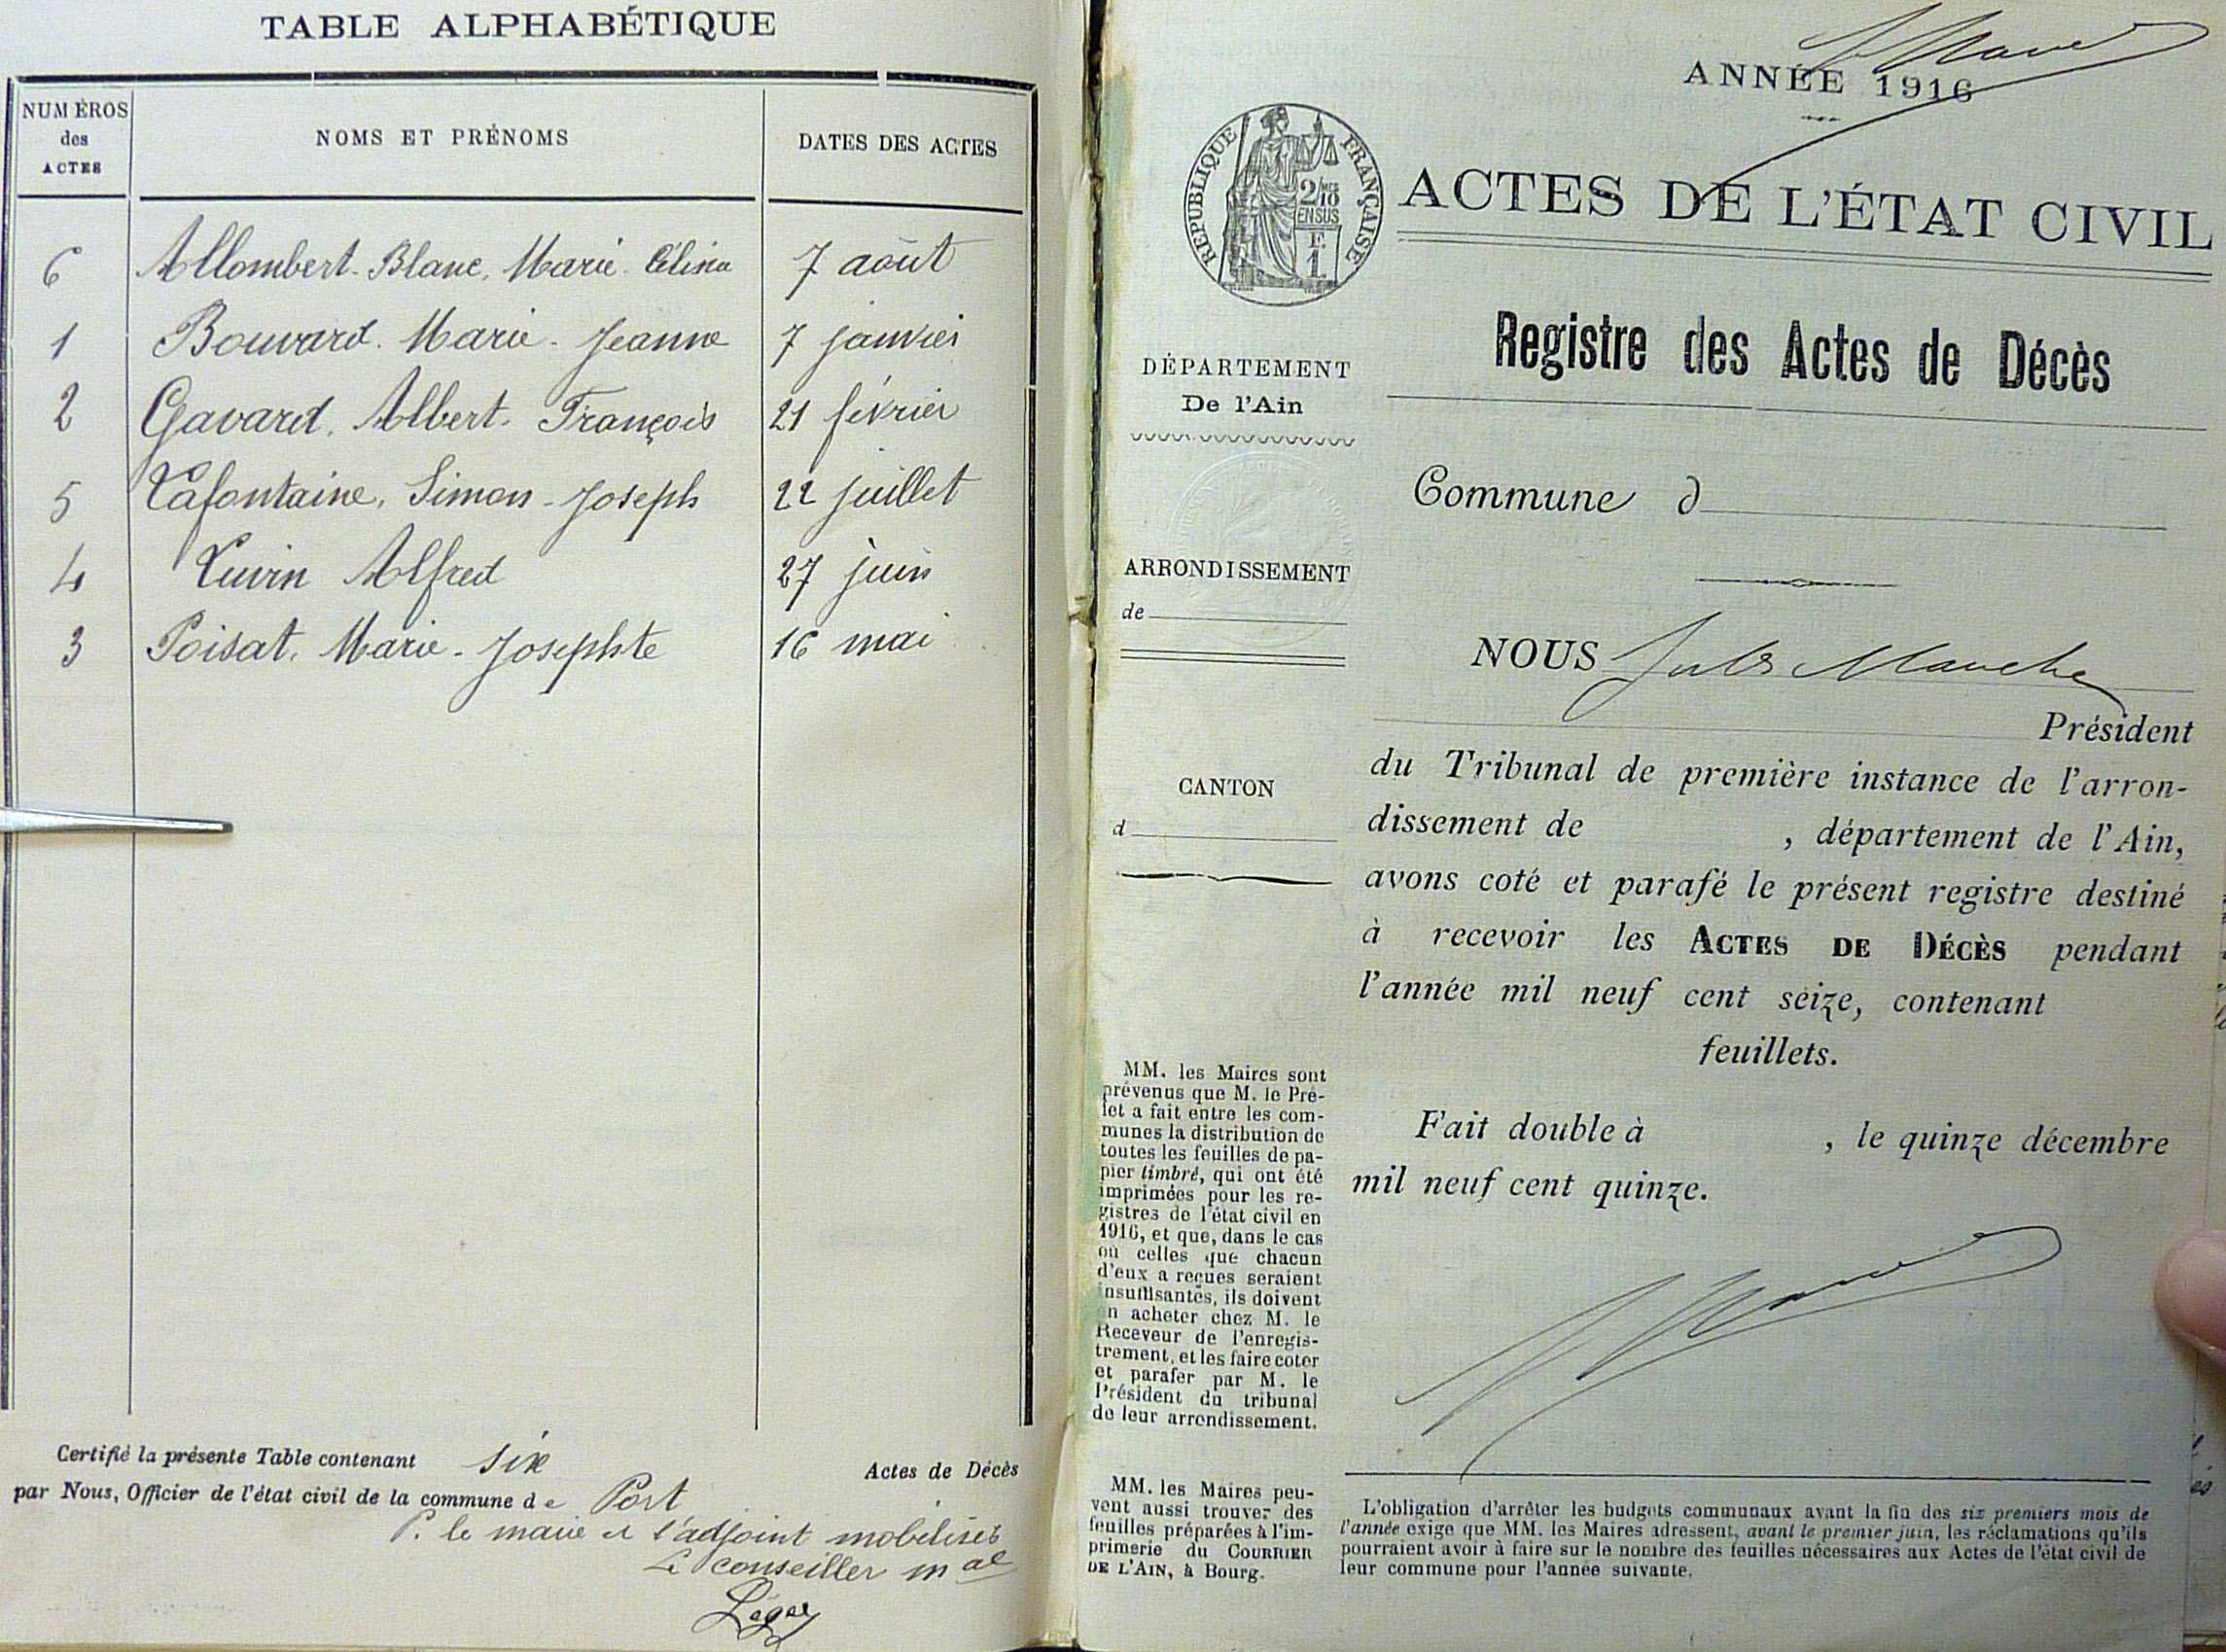 TABLE ALPHABÉTIQUE
NUMÉROS
des
ACTES
NOMS ET PRÉNOMS
DATES DES ACTES
6 Allombert-Blanc, Marie-Célina 7 août
1 Bouvard. Marie-Jeanne 7 janvier
2 Gavard. Albert-François 21 février
5 Lafontaine, Simon-Joseph 22 juillet
4 Luvin Alfred 27 juin
3 Poisat. Marie-Josephte 16 mai
Certifié la présente Table contenant six Actes de Décès
par Nous, Officier de l'état civil de la commune de Port
P. le maire et l'adjoint mobilisés
Le conseiller mal
Léger
ANNÉE 1916
RÉPUBLIQUE FRANÇAISE
2/10
EN SUS
E
1
ACTES DE L'ÉTAT CIVIL
Registre des Actes de Décès
DÉPARTEMENT
De l'Ain
Commune d
ARRONDISSEMENT
de
NOUS Jules Mauche
Président
du Tribunal de première instance de l'arron-
dissement de , département de l'Ain,
avons coté et parafé le présent registre destiné
à recevoir les ACTES DE DÉCÈS pendant
l'année mil neuf cent seize, contenant
feuillets.
Fait double à , le quinze décembre
mil neuf cent quinze.
CANTON
d
MM. les Maires sont
prévenus que M. le Pré-
fet a fait entre les com-
munes la distribution de
toutes les feuilles de pa-
pier timbré, qui ont été
imprimées pour les re-
gistres de l'état civil en
1916, et que, dans le cas
où celles que chacun
d'eux a reçues seraient
insuffisantes, ils doivent
en acheter chez M. le
Receveur de l'enregis-
trement, et les faire coter
et parafer par M. le
Président du tribunal
de leur arrondissement.
MM. les Maires peu-
vent aussi trouver des
feuilles préparées à l'im-
primerie du COURRIER
DE L'AIN, à Bourg.
L'obligation d'arrêter les budgets communaux avant la fin des six premiers mois de
l'année exige que MM. les Maires adressent, avant le premier juin, les réclamations qu'ils
pourraient avoir à faire sur le nombre des feuilles nécessaires aux Actes de l'état civil de
leur commune pour l'année suivante.